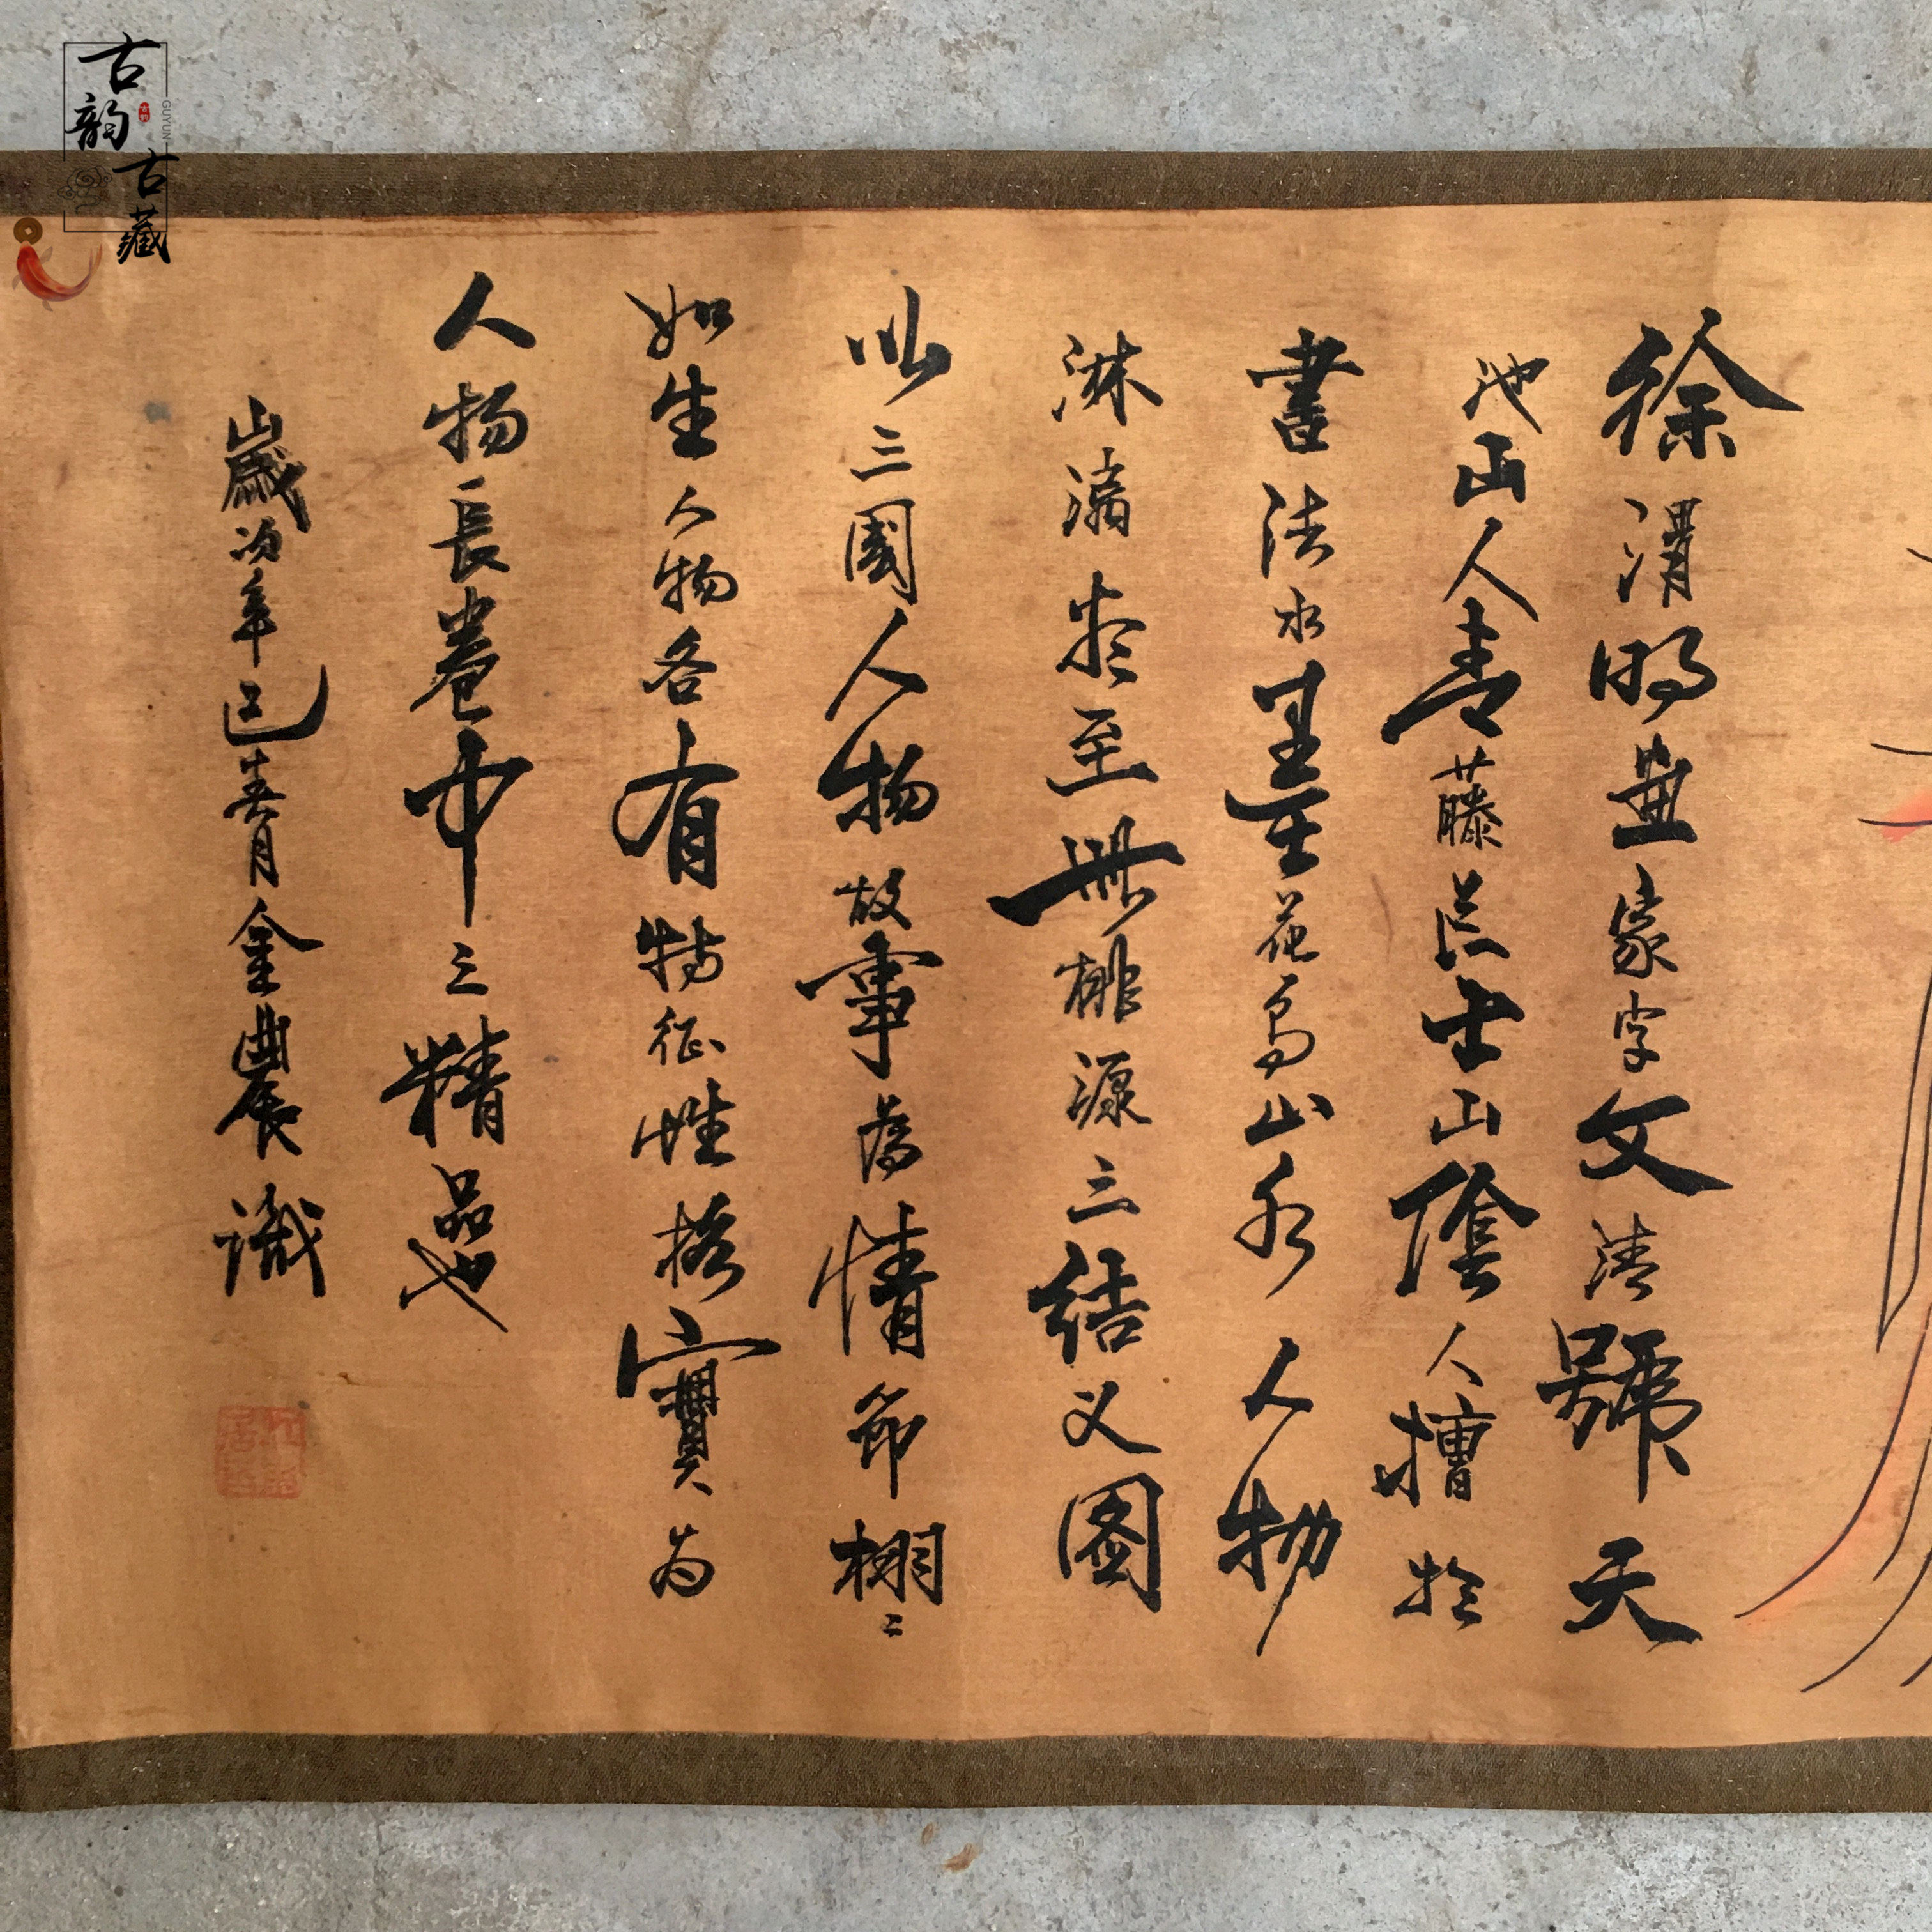 徐渭明畫家字文清號天
池山人青藤居士山陰人擅於
書法水墨花鳥山水人物
淋漓盡至桃源三结义图
以三國人物故事為情節栩々
如生人物各有特征性格實为
人物長卷中之精品也
歲次辛巳春月金農識
古韵古藏
GUYUN